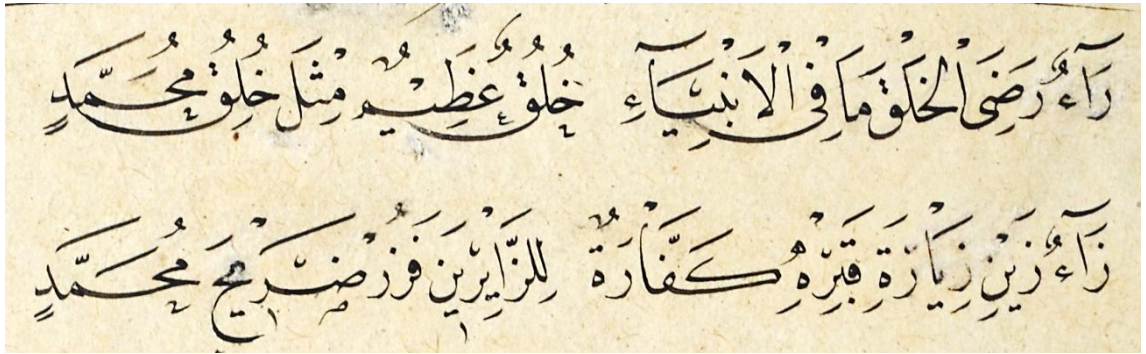 رَآءٌ رَضِىَ الْخَلْقَ مَا فِى الْاَنْبِيَآءِ خُلُقٌ عَظِيمٌ مِثْلَ خُلُقِ مُحَمَّدٍ
زَآءٌ زَيْنِ زِيَارَةِ قَبْرِهِ كَفَّارَةٌ لِلزَّايِرْيِنَ فَزُرْ ضَرِيحَ مُحَمَّدٍ